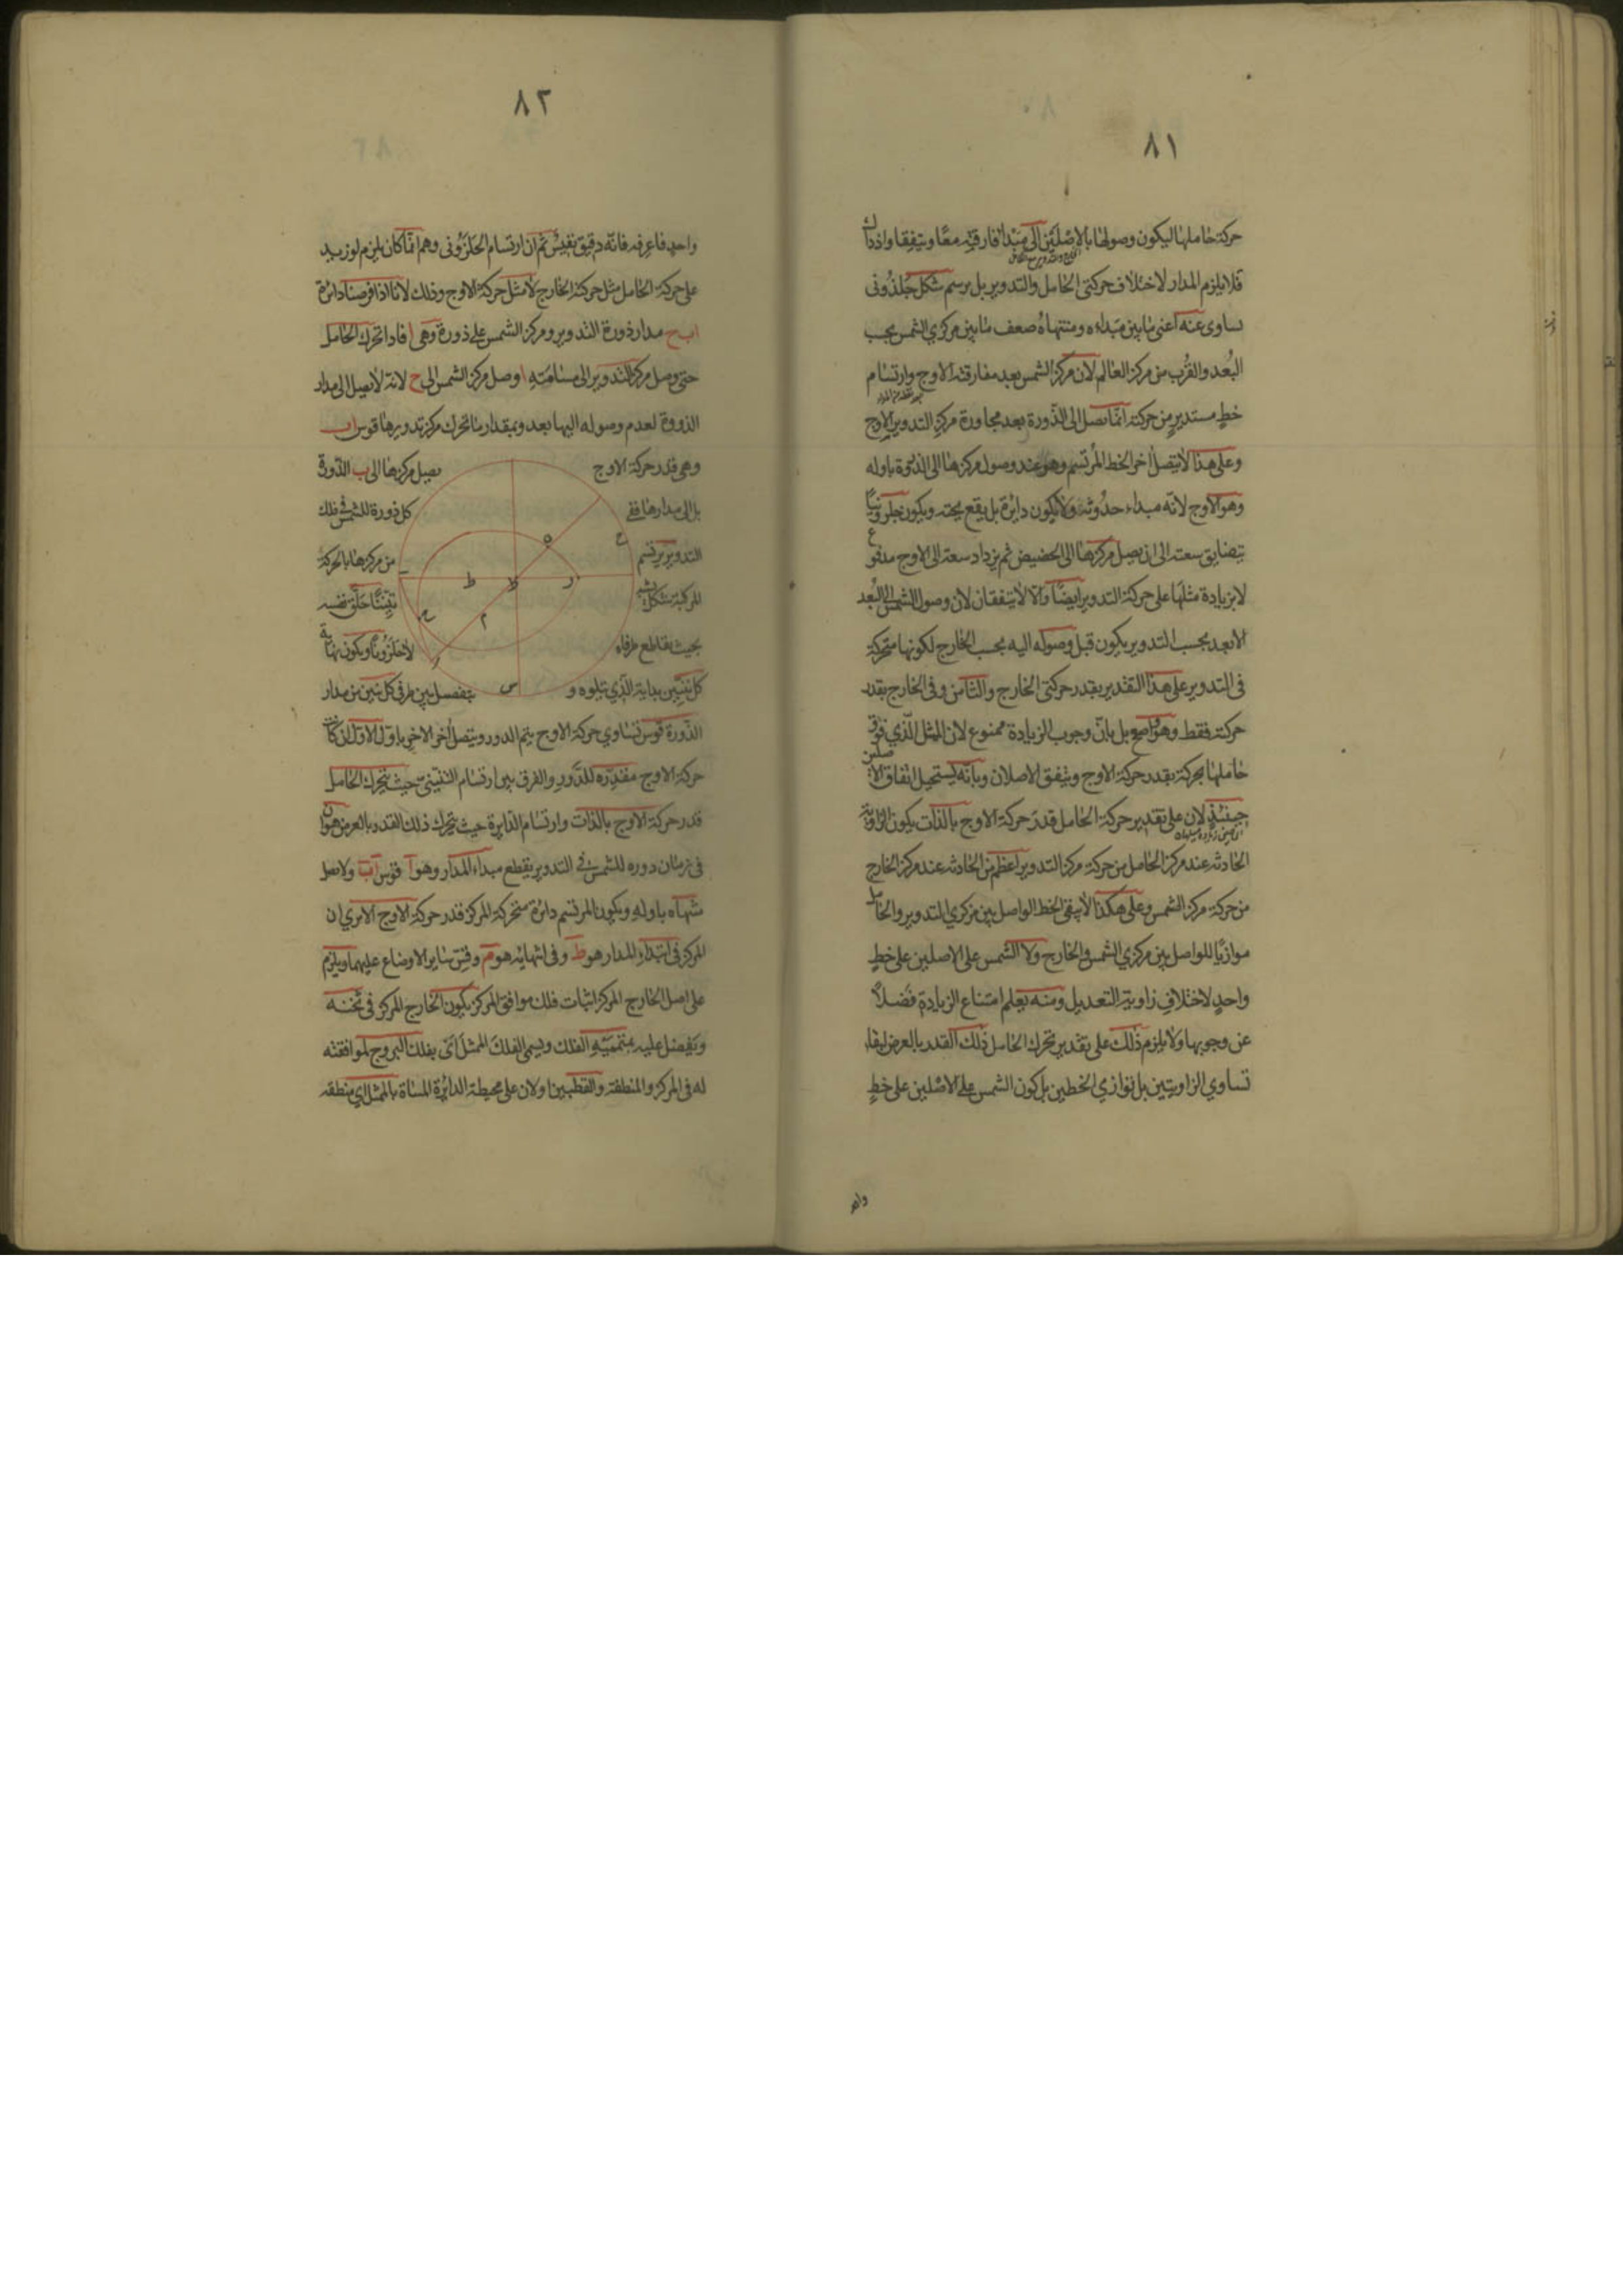 ٨١
حركة حاملها ليكون وصولها بالاصلين الى مبدا فارقته معا ويتفقا واذ ذاك
فلا يلزم المدار لاختلاف حركتى الحامل والتدوير بل يرسم شكل حلزونى
ساوى عنه اعنى ما بين مبداه ومنتهاه ضعف ما بين مركزي الشمس بحسب
البعد والقرب من مركز العالم لان مركز الشمس بعد مفارقته الاوج وارتسام
خط مستدير من حركته انما تصل الى الذروة بعد مجاوزة مركز التدوير الاوج
وعلى هذا لا يتصل اخر الخط المرتسم وهو عند وصول مركزها الى الذروة باوله
وهو الاوج لانه مبداء حدوثه ولا يكون دايرة بل يقع تحته ويكون حلزونيا
يتضايق سعته الى ان يصل مركزها الى الحضيض ثم يزداد سعته الى الاوج
لا بزيادة مثلها على حركة التدوير ايضا والا لا يتفقان لان وصول الشمس الى البعد
الابعد بحسب التدوير يكون قبل وصوله اليه بحسب الخارج لكونها متحركة
فى التدوير على هذا التقدير بقدر حركتى الخارج والثامن وفى الخارج بقدر
حركته فقط وهو بل بان وجوب الزيادة ممنوع لان الممثل الذي فوق
حاملها يحركه بقدر حركة الاوج ويتفق الاصلان وبانه يستحيل اتفاق الاصلين
حينئذ لان على تقدير حركة الحامل قدر حركة الاوج بالذات يكون الزاوية
الحادثة عند مركز الحامل من حركة مركز التدوير اعظم من الحادثة عند مركز الخارج
من حركة مركز الشمس وعلى هكذا لا يبقى الخط الواصل بين مركزي التدوير والحامل
موازيا للواصل بين مركزي الشمس والخارج ولا الشمس على الاصلين على خط
واحد لاختلاف زاويتى التعديل ومنه يعلم امتناع الزيادة فضلا
عن وجوبها ولا يلزم ذلك على تقدير تحرك الحامل ذلك القدر بالعرض لبقاء
تساوي الزاويتين بل توازي الخطين بل كون الشمس على الاصلين على خط
٨٢
واحد فاعرفه فانه دقيق نفيس ثم ان ارتسام الحلزونى وهم انما كان يلزم لو زيد
على حركة الحامل مثل حركة الخارج لا مثل حركة الاوج وذلك لانا اذا فرضنا دائرة
اب ح مدار ذروة التدوير ومركز الشمس على ذروة وهى ا فاذا تحرك الحامل
حتى وصل مركز التدوير الى مسامتة ا وصل مركز الشمس الى ح لانه لا يصل الى مدار
الذروة لعدم وصوله اليها بعد وبمقدار ما تحرك مركز تدويرها قوس اب
وهى قدر حركة الاوج يصل مركزها الى ب الذروة
بل الى مدارها ففى كل ذورة للشمس فى فلك
التدوير يرتسم من مركزها بالحركة
المركبة شكل شبه تنينيا حلق نفسه
بحيث تقاطع طرفاه لا حلزونيا ويكون نهاية
كل تنين بداية الذي تيلوه و ينفصل بين طرفى كل تنين من مدار
الذروة قوس تساوي حركة الاوج يتم الدور ويتصل اخر الاخر باول الاول ان كانت
حركة الاوج مقدرة للدور والفرق بين ارتسام التنينى حيث يتحرك الحامل
قدر حركة الاوج بالذات وارتسام الدايرة حيث يتحرك ذلك القدر بالعرض هو ان
فى زمان دوره للشمس فى التدوير يقطع مبداء المدار وهو ا قوس اب ولا يصل
منتهاه باوله ويكون المرتسم دائرة متحركة المركز قدر حركة الاوج الا ترى ان
المركز فى ابتداء المدار هو ط وفى انتهائه هو م وقس ساير الاوضاع عليهما ويلزم
على اصل الخارج المركز اثبات فلك موافق المركز يكون الخارج المركز فى ثخنه
ويفضل عليه بمتمميه الفلك ويسمى الفلك الممثل اى بفلك البروج لموافقته
له فى المركز والمنطقة والقطبين او لان على محيطه الدائرة المسماة بالممثل اي منطقه